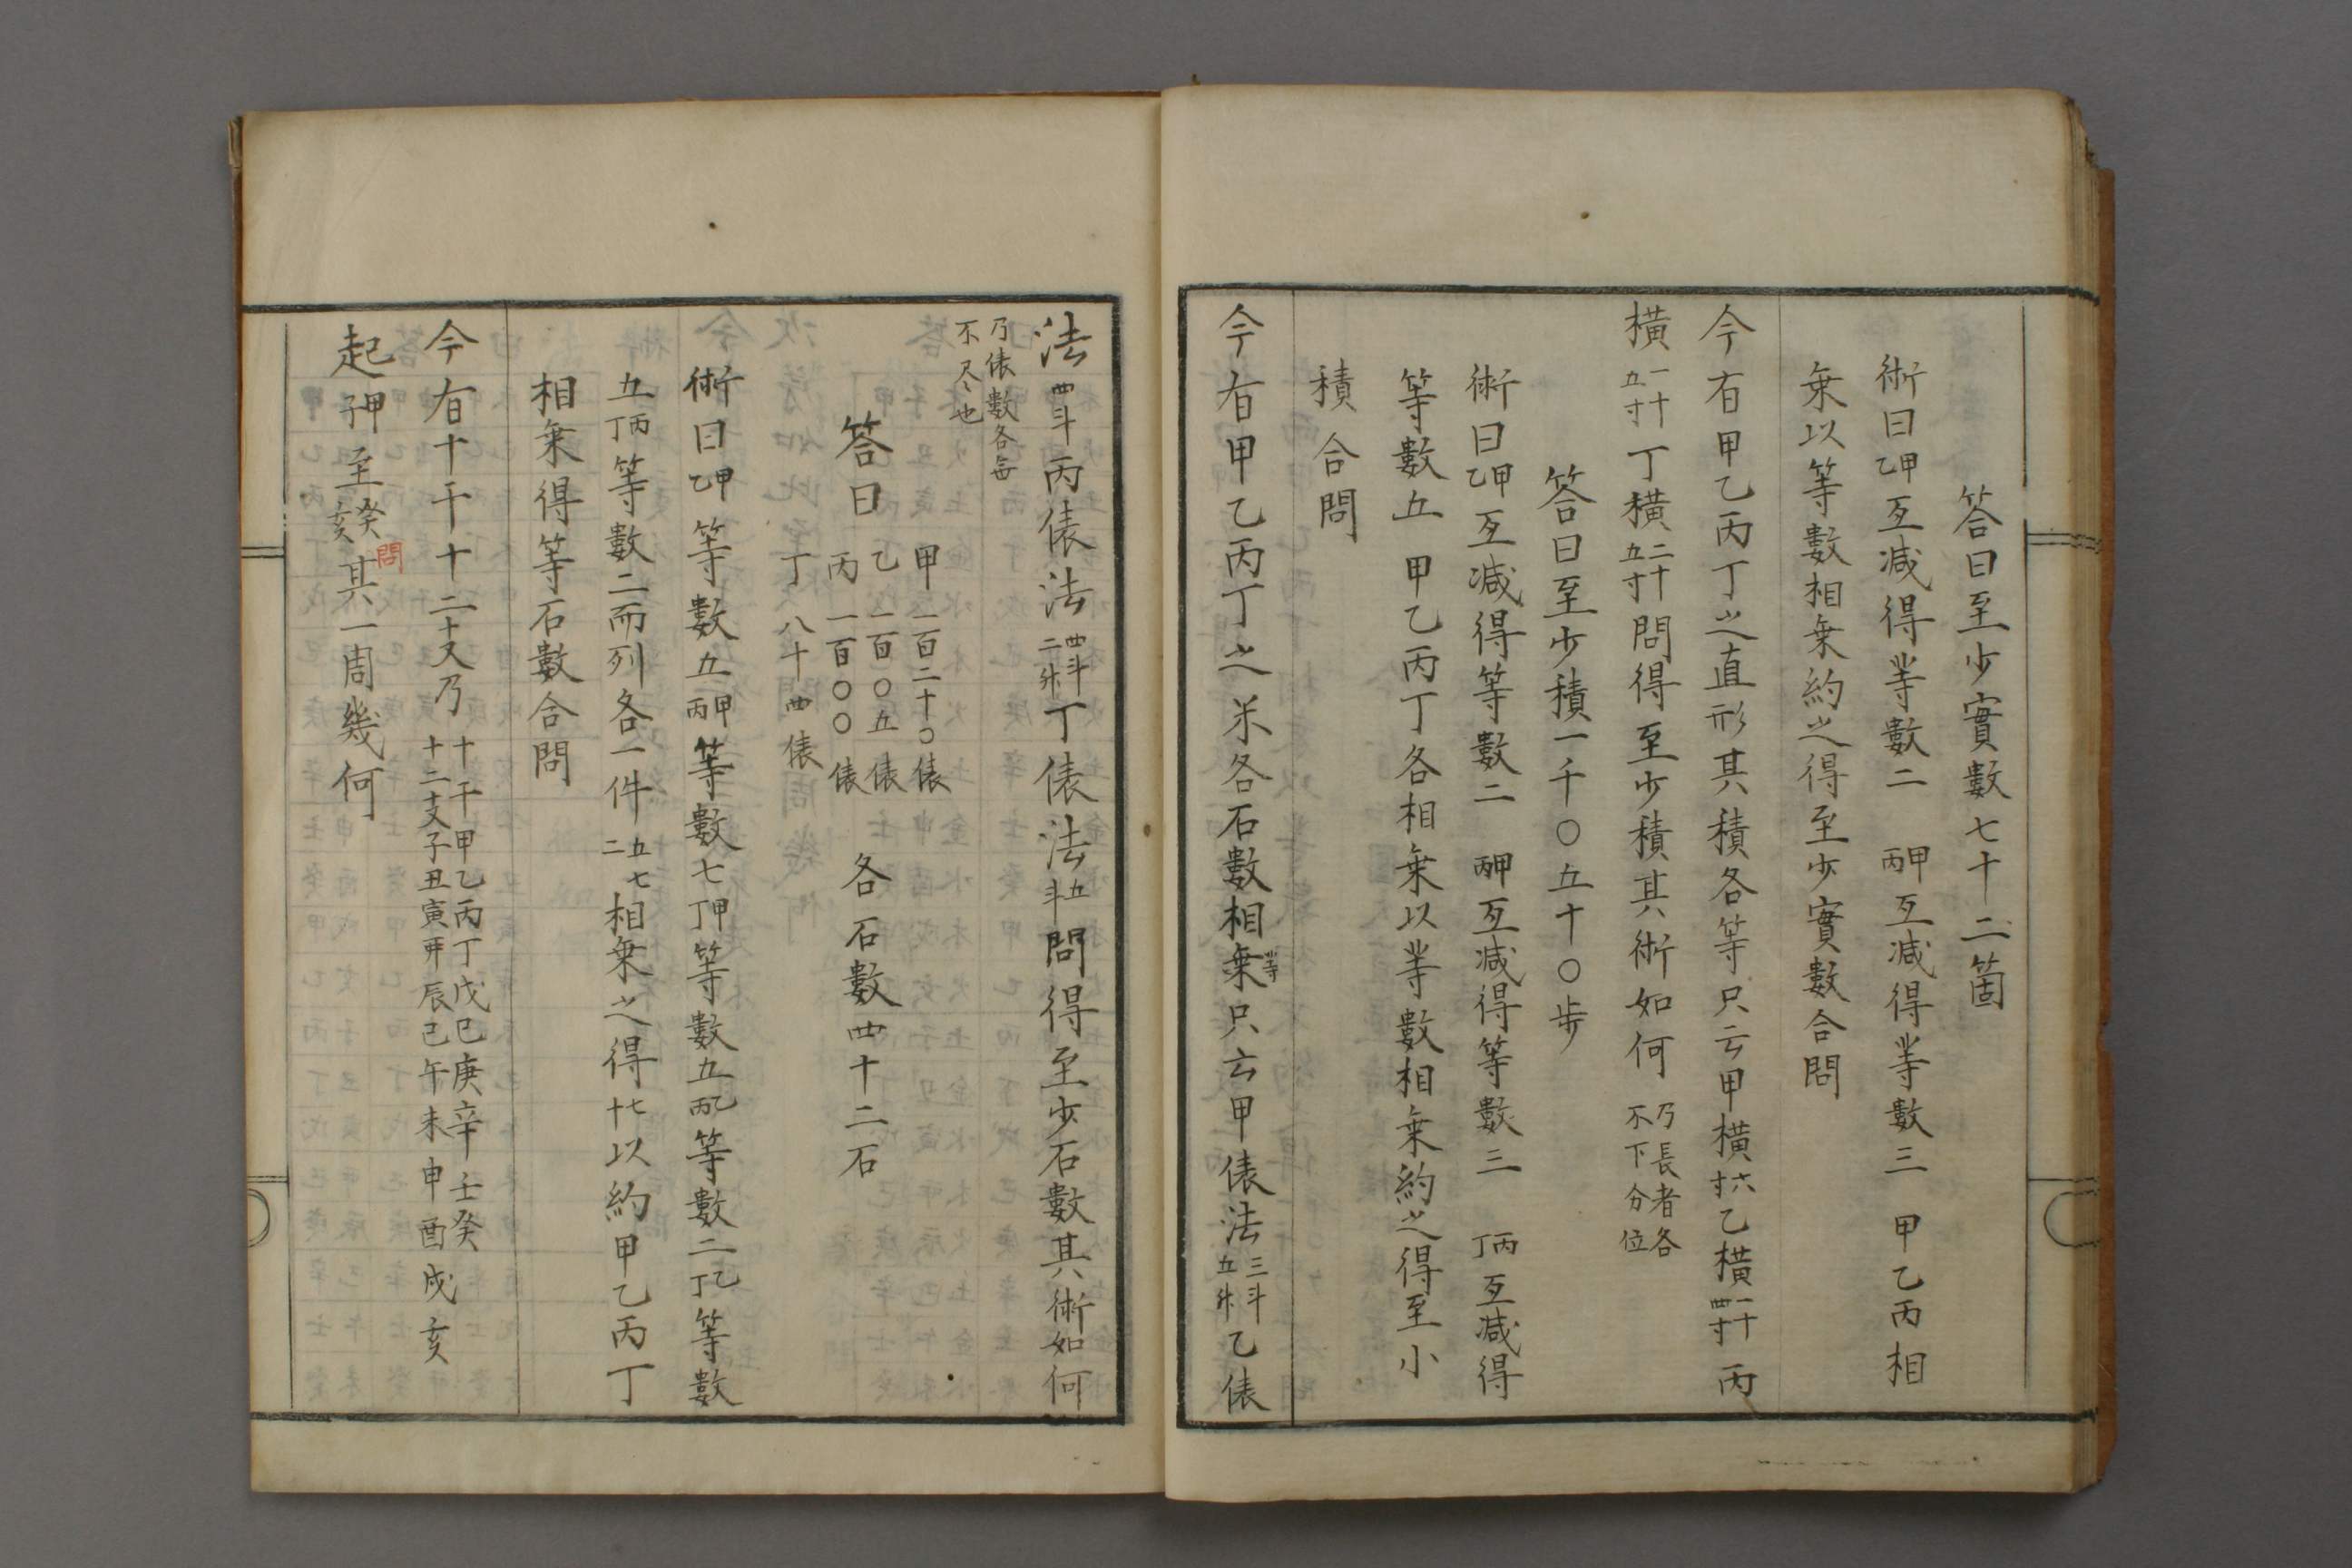 答曰至少實數七十二箇
術曰甲乙互减得等數二　甲丙互减得等數三　甲乙丙相
乗以等數相乗約之得至少實數合問
今有甲乙丙丁之直形其積各等只云甲橫六寸乙橫一十四寸丙
橫一十五寸丁橫二十五寸問得至少積其術如何乃長者各不下分位
答曰至少積一千〇五十〇歩
術曰甲乙互减得等數二　甲丙互减得等數三　丙丁互减得
等數五　甲乙丙丁各相乗以等數相乗約之得至小
積合問
今有甲乙丙丁之米各石數相乗等只云甲俵法三斗五升乙俵
法四斗丙俵法四斗二升丁俵法五斗問得至少石數其術如何
乃俵數各每不尽也
答曰
甲一百二十〇俵
乙一百〇五俵
丙一百〇〇俵
丁八十四俵
各石數四十二石
術曰甲乙等數五甲丙等數七甲丁等數五乙丙等數二乙丁等數
五丙丁等數二而列各一件五七二相乗之得七十以約甲乙丙丁
相乗得等石數合問
今有十干十二支又乃十干甲乙丙丁戊己庚辛壬癸十二支子丑寅卯辰巳午未申酉戌亥
起甲子至癸亥問其一周幾何